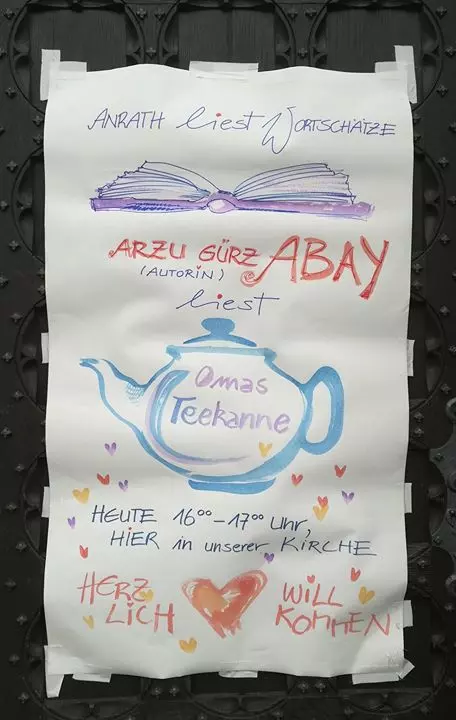 ANRATH liest WORTSCHÄTZE
ARZU GÜRZ ABAY
(AUTORIN)
liest
Omas
Teekanne
HEUTE 16⁰⁰-17⁰⁰ Uhr,
HIER in unserer KIRCHE
HERZ WILL
LICH KOMMEN